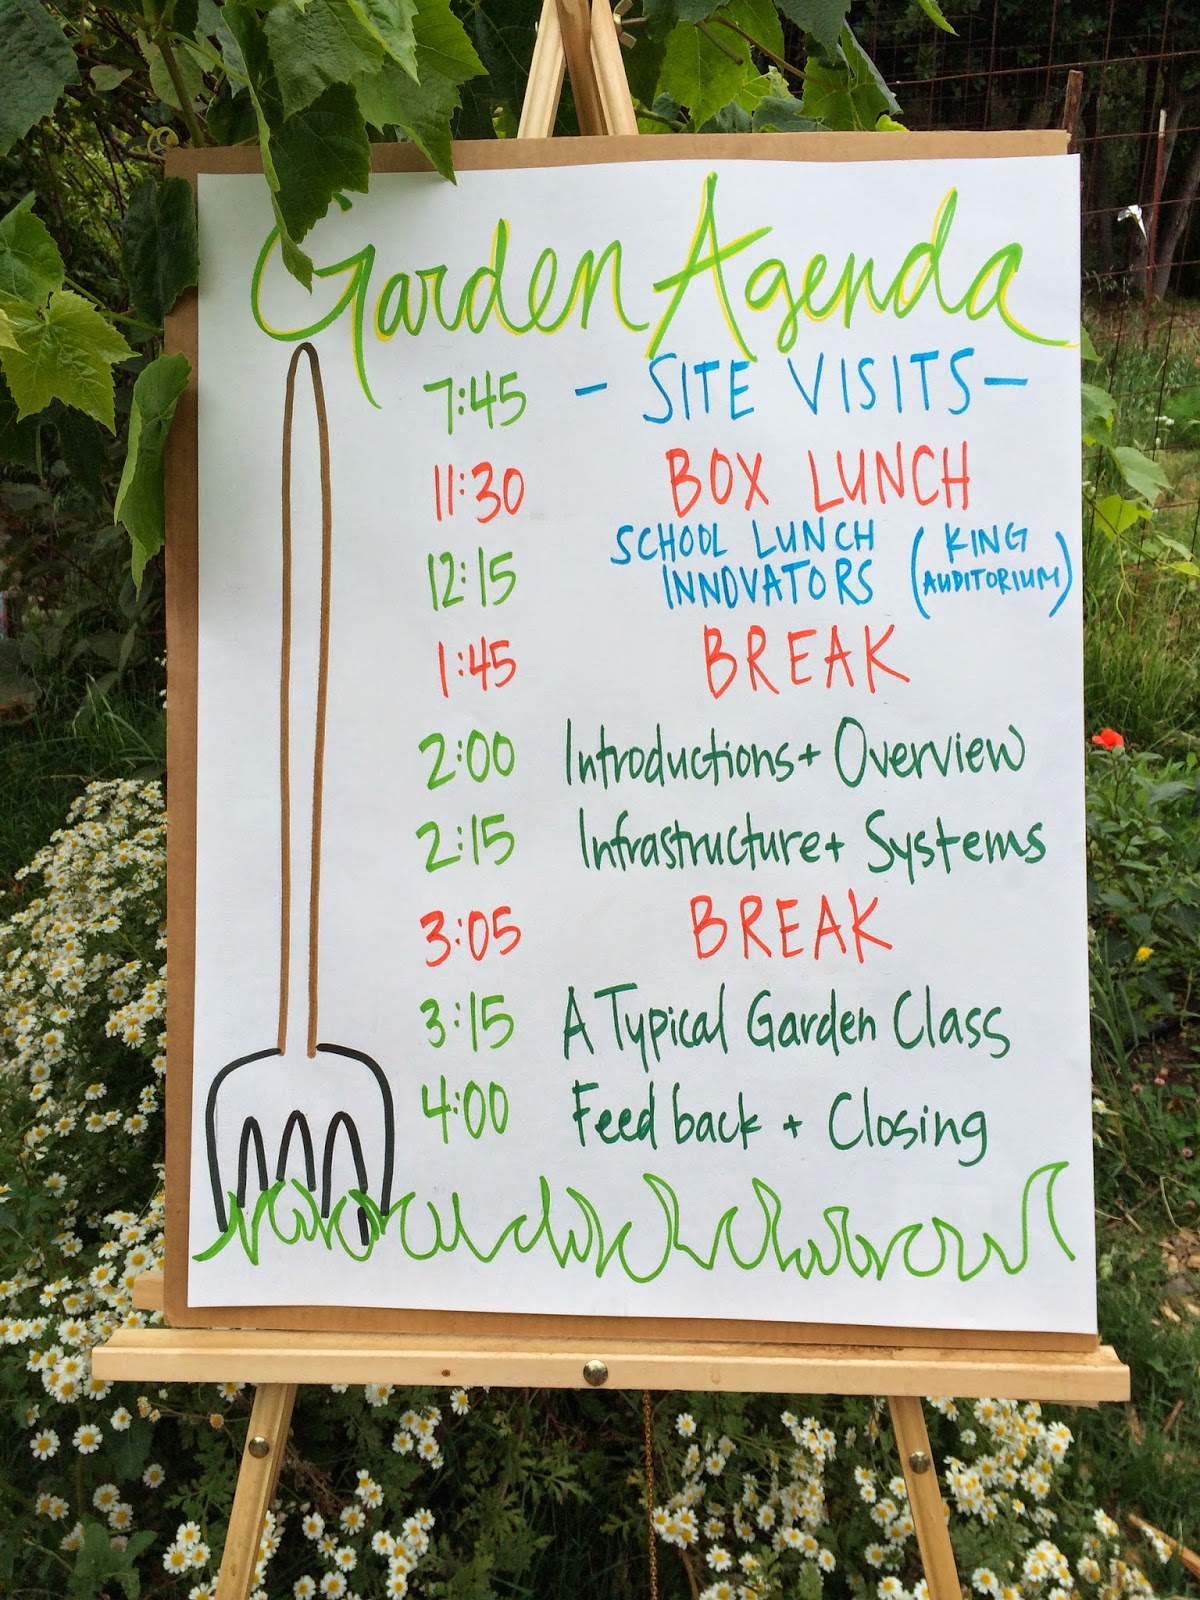 Garden Agenda
7:45 - SITE VISITS -
11:30 BOX LUNCH
12:15 SCHOOL LUNCH INNOVATORS (KING AUDITORIUM)
1:45 BREAK
2:00 Introductions + Overview
2:15 Infrastructure + Systems
3:05 BREAK
3:15 A Typical Garden Class
4:00 Feedback + Closing